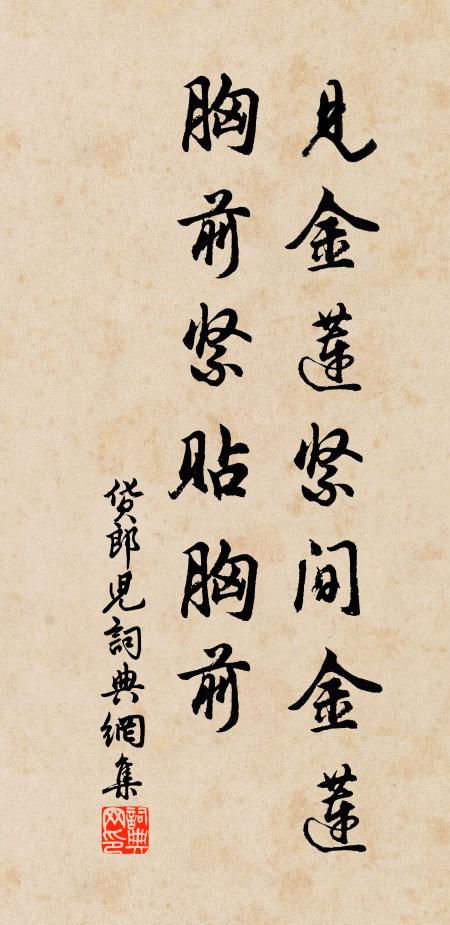 見金蓮緊間金蓮
胸前緊貼胸前
貨郎兒詞典網集
詞典网印